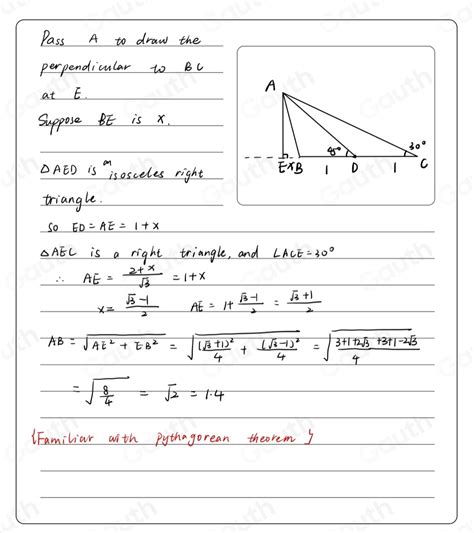 Pass A to draw the
perpendicular to BC
at E.
Suppose BE is x.
△AED is an isosceles right
triangle.
so ED=AE=1+x
△AEC is a right triangle, and ∠ACE=30°
∴ AE = (2+x)/√3 = 1+x
x = (√3-1)/2 AE = 1+ (√3-1)/2 = (√3+1)/2
AB = √(AE²+EB²) = √((√3+1)²/4 + (√3-1)²/4) = √((3+1+2√3+3+1-2√3)/4)
= √(8/4) = √2 = 1.4
{Familiar with pythagorean theorem}
A
45°
30°
E x B 1 D 1 C
Gauth